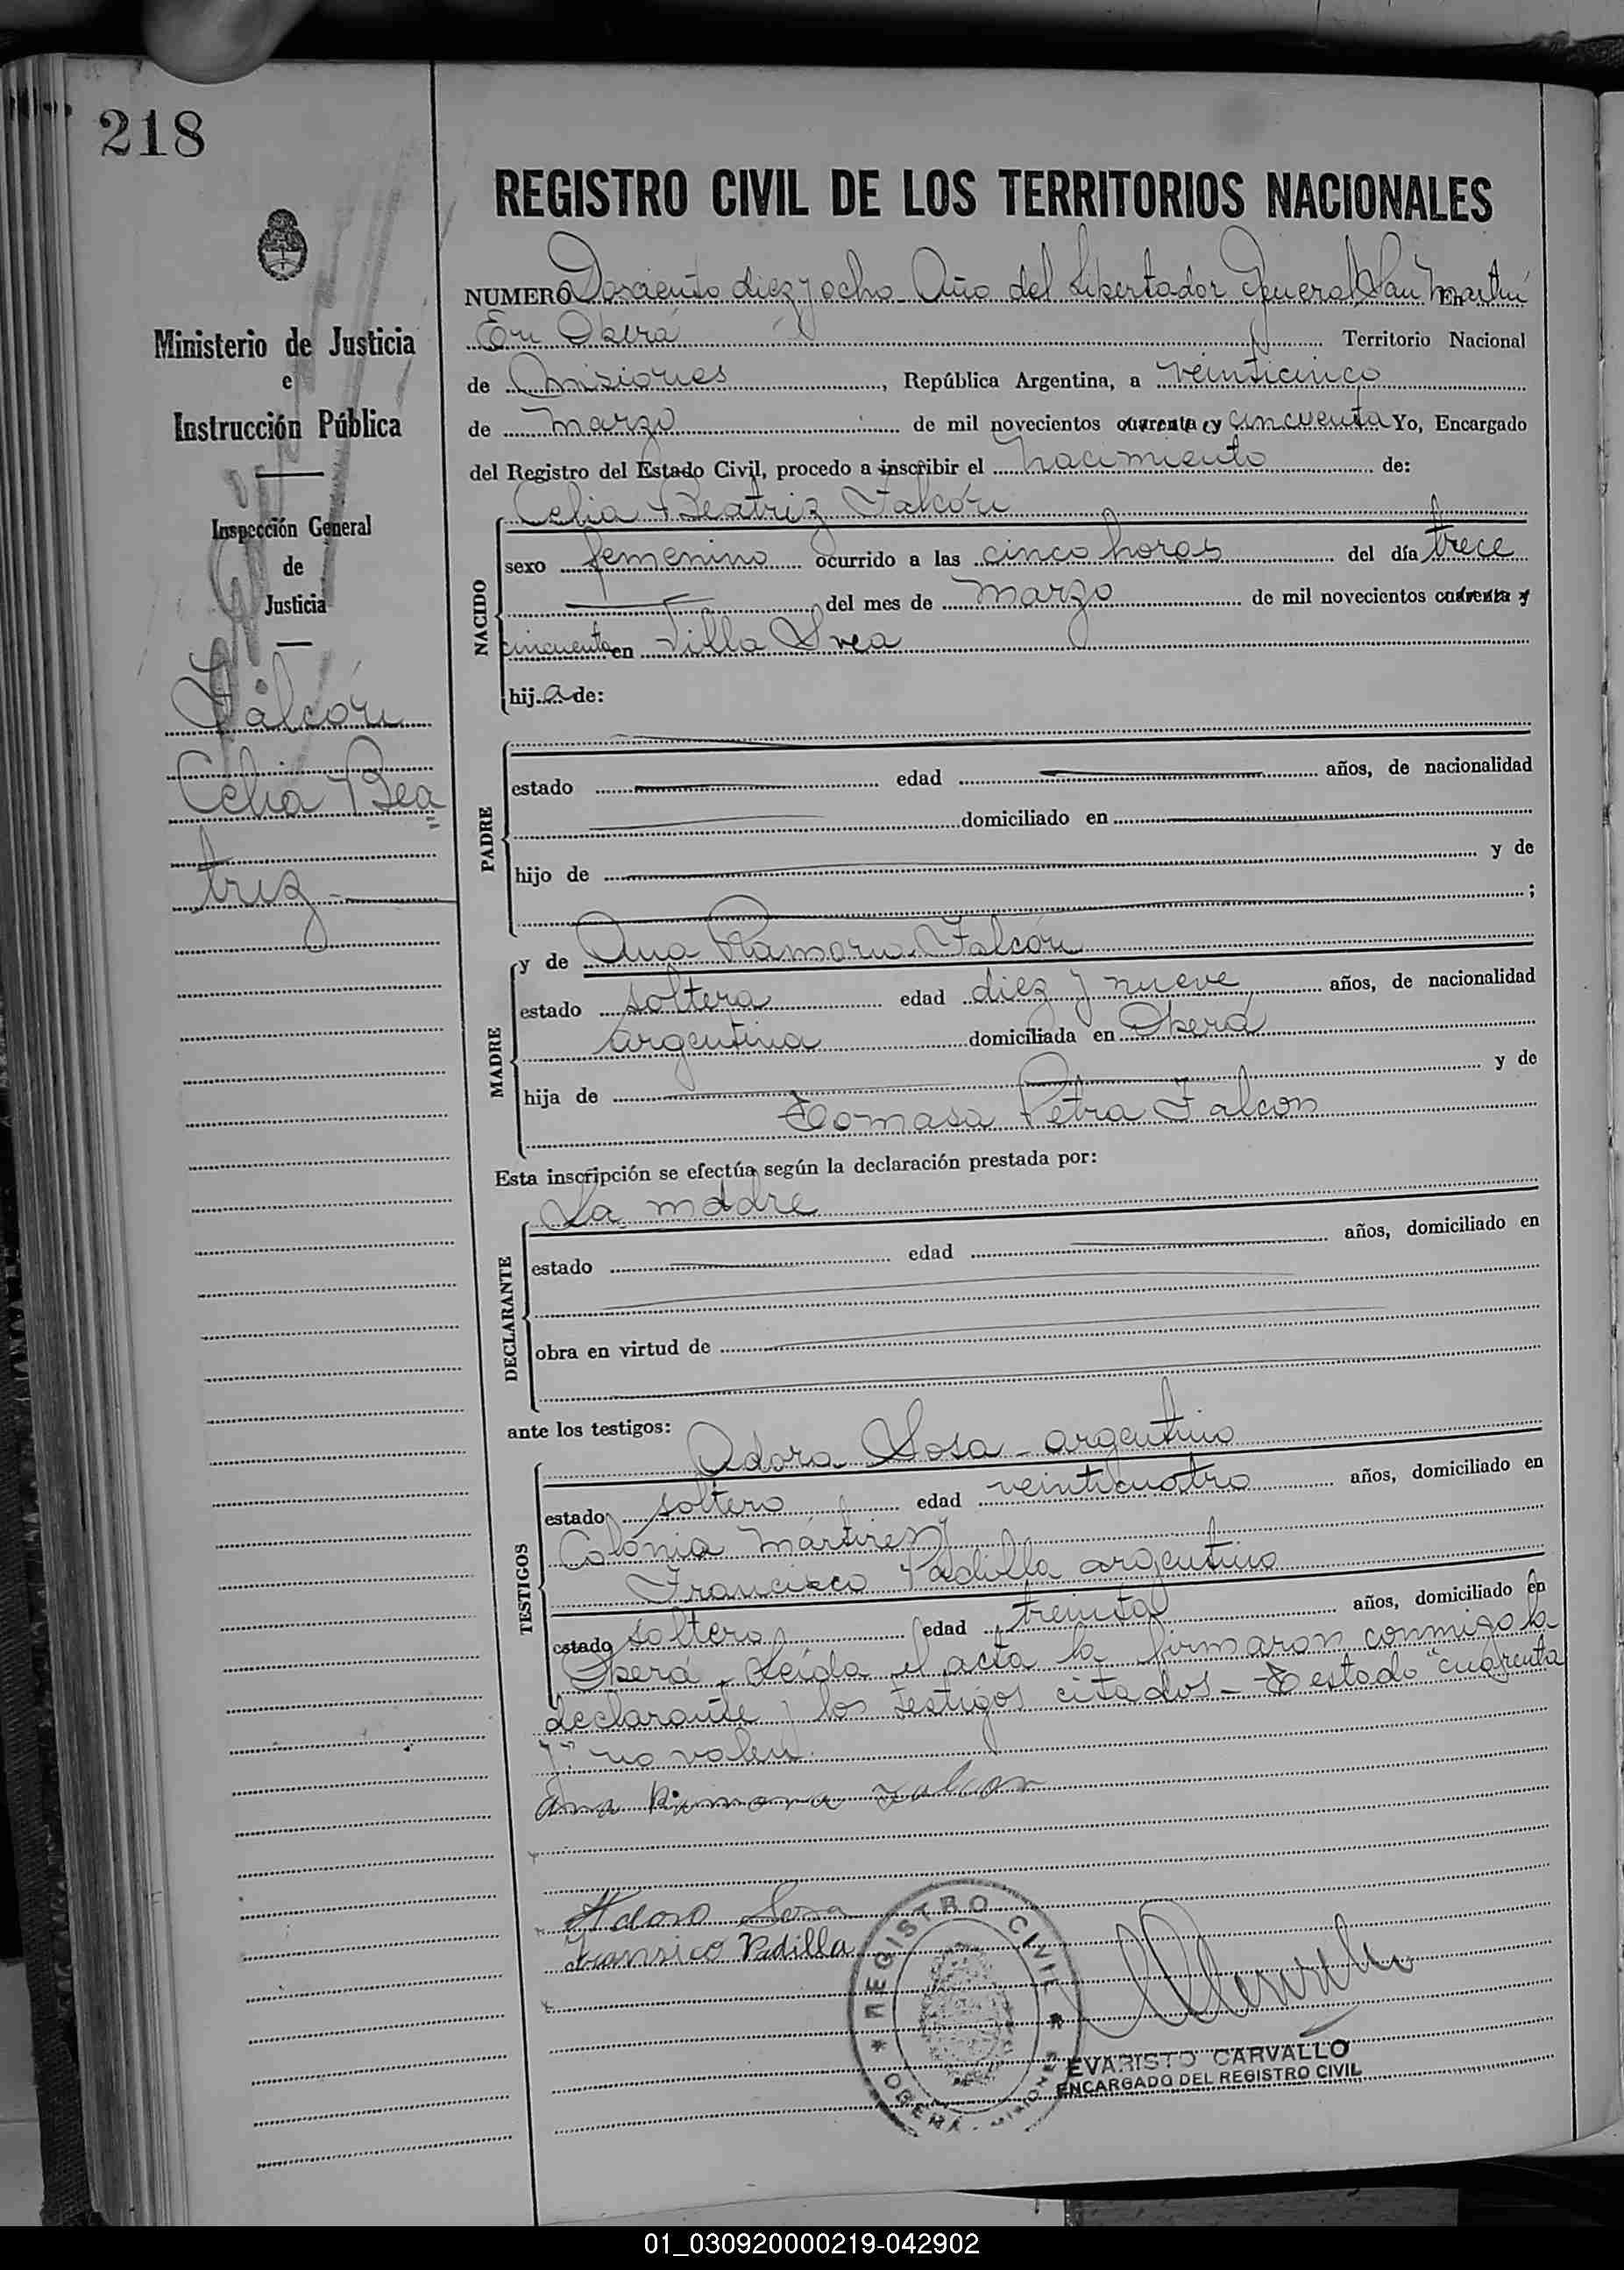 218
REGISTRO CIVIL DE LOS TERRITORIOS NACIONALES
Ministerio de Justicia
e
Instrucción Pública
Inspección General
de
Justicia
Falcón
Celia Bea
triz
NUMERO Doscientos diez y ocho Año del Libertador General San Martín En
En Oberá Territorio Nacional
de Misiones, República Argentina, a veinticinco
de marzo de mil novecientos cuarenta y cincuenta Yo, Encargado
del Registro del Estado Civil, procedo a inscribir el nacimiento de:
Celia Beatriz Falcón
NACIDO
sexo femenino ocurrido a las cinco horas del día trece
del mes de marzo de mil novecientos cuarenta y
cincuenta en Villa Svea
hija de:
PADRE
estado edad años, de nacionalidad
domiciliado en
hijo de y de
;
MADRE
y de Ana Ramona Falcón
estado soltera edad diez y nueve años, de nacionalidad
argentina domiciliada en Oberá
hija de y de
Tomasa Petra Falcon
Esta inscripción se efectúa según la declaración prestada por:
La madre
DECLARANTE
estado edad años, domiciliado en
obra en virtud de
ante los testigos:
TESTIGOS
Adora Sosa - argentino
estado soltero edad veinticuatro años, domiciliado en
Colonia Mártires y
Francisco Padilla argentino
estado soltero edad treinta años, domiciliado en
Oberá. Leída el acta la firmaron conmigo la
declarante y los testigos citados - Testado "cuarenta
y" no valen.
Ana Ramona Falcon
Adoro Sosa
Fransico Padilla
REGISTRO CIVIL
OBERA MISIONES
EVARISTO CARVALLO
ENCARGADO DEL REGISTRO CIVIL
01_030920000219-042902